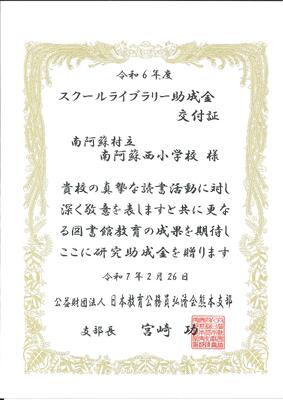 令和6年度
スクールライブラリー助成金
交付証
南阿蘇村立
南阿蘇西小学校 様
貴校の真摯な読書活動に対し
深く敬意を表しますと共に更な
る図書館教育の成果を期待し
ここに研究助成金を贈ります
令和7年2月26日
公益財団法人 日本教育公務員弘済会熊本支部
支部長 宮崎 功